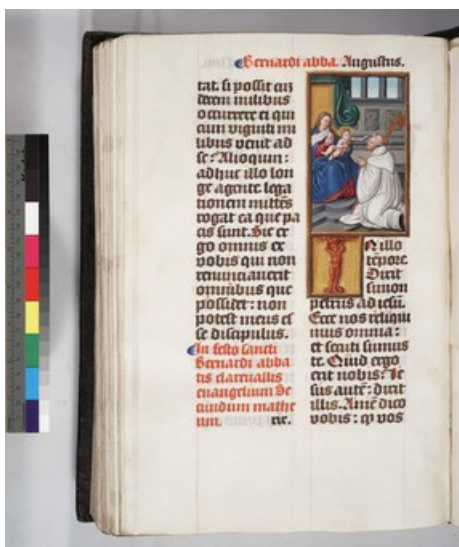 Bernardi abba. Augustus.
tat. si possit cuz
decem milibus
occurrere ei qui
cum viginti mi
libus venit ad
se: Alioquin:
adhuc illo lon
ge agente lega
tionem mittens
rogat ea que pa
cis sunt. Sic er
go omnis ex
vobis qui non
renunciaverit
omnibus que
possidet: non
potest meus es
se discipulus.
In festo sancti
Bernardi abba
tis clarevallis
euangelium Se
cundum mathe
um. xix.
N illo
tempore.
Dixit
simon
petrus ad iesu.
Ecce nos reliqui
mus omnia:
et secuti sumus
te. Quid ergo
erit nobis: Ie
sus aute: dixit
illis. Ame dico
vobis: q vos